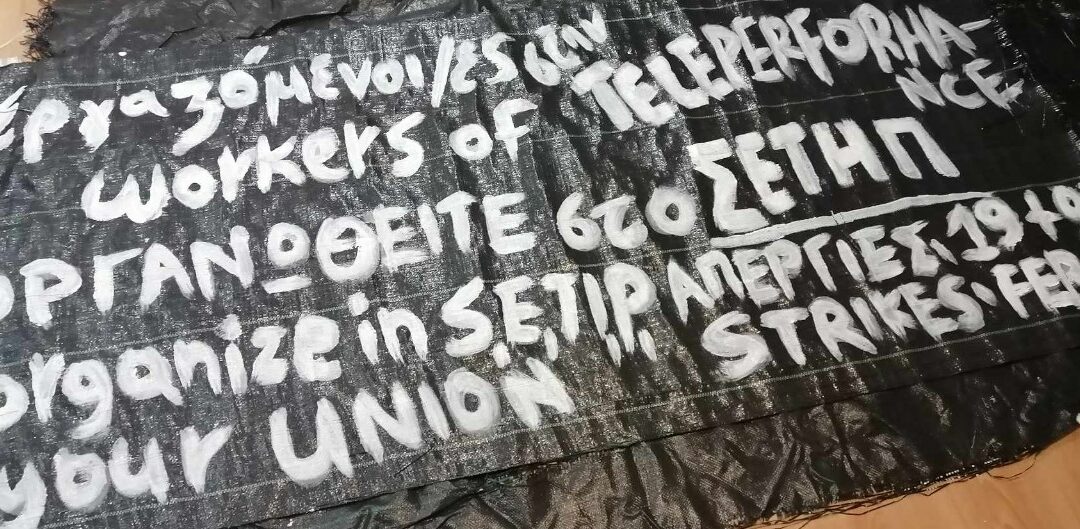 εργαζόμενοι/ες στην TELEPERFORMA-
NCE
workers of
ΟΡΓΑΝΩΘΕΙΤΕ στο ΣΕΤΗΠ
organize in S.E.T.I.P. ΑΠΕΡΓΙΕΣ. 19
your UNION STRIKES.